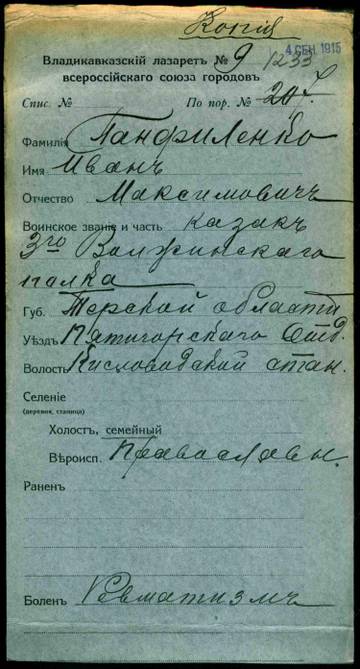 Копія
Владикавказскій лазаретъ № 9
4 СЕН. 1915
всероссійскаго союза городовъ
1233
Спис. № По пор. № 207.
Фамилія Панфиленко
Имя Иванъ
Отчество Максимовичъ
Воинское званіе и часть казакъ
3го Волжинскаго
полка
Губ. Терской области
Уѣздъ Пятигорскаго Отд.
Волость Кисловодской стан.
Селеніе
(деревня, станица)
Холостъ, семейный
Вѣроисп. Православн.
Раненъ
Боленъ Ревматизмъ